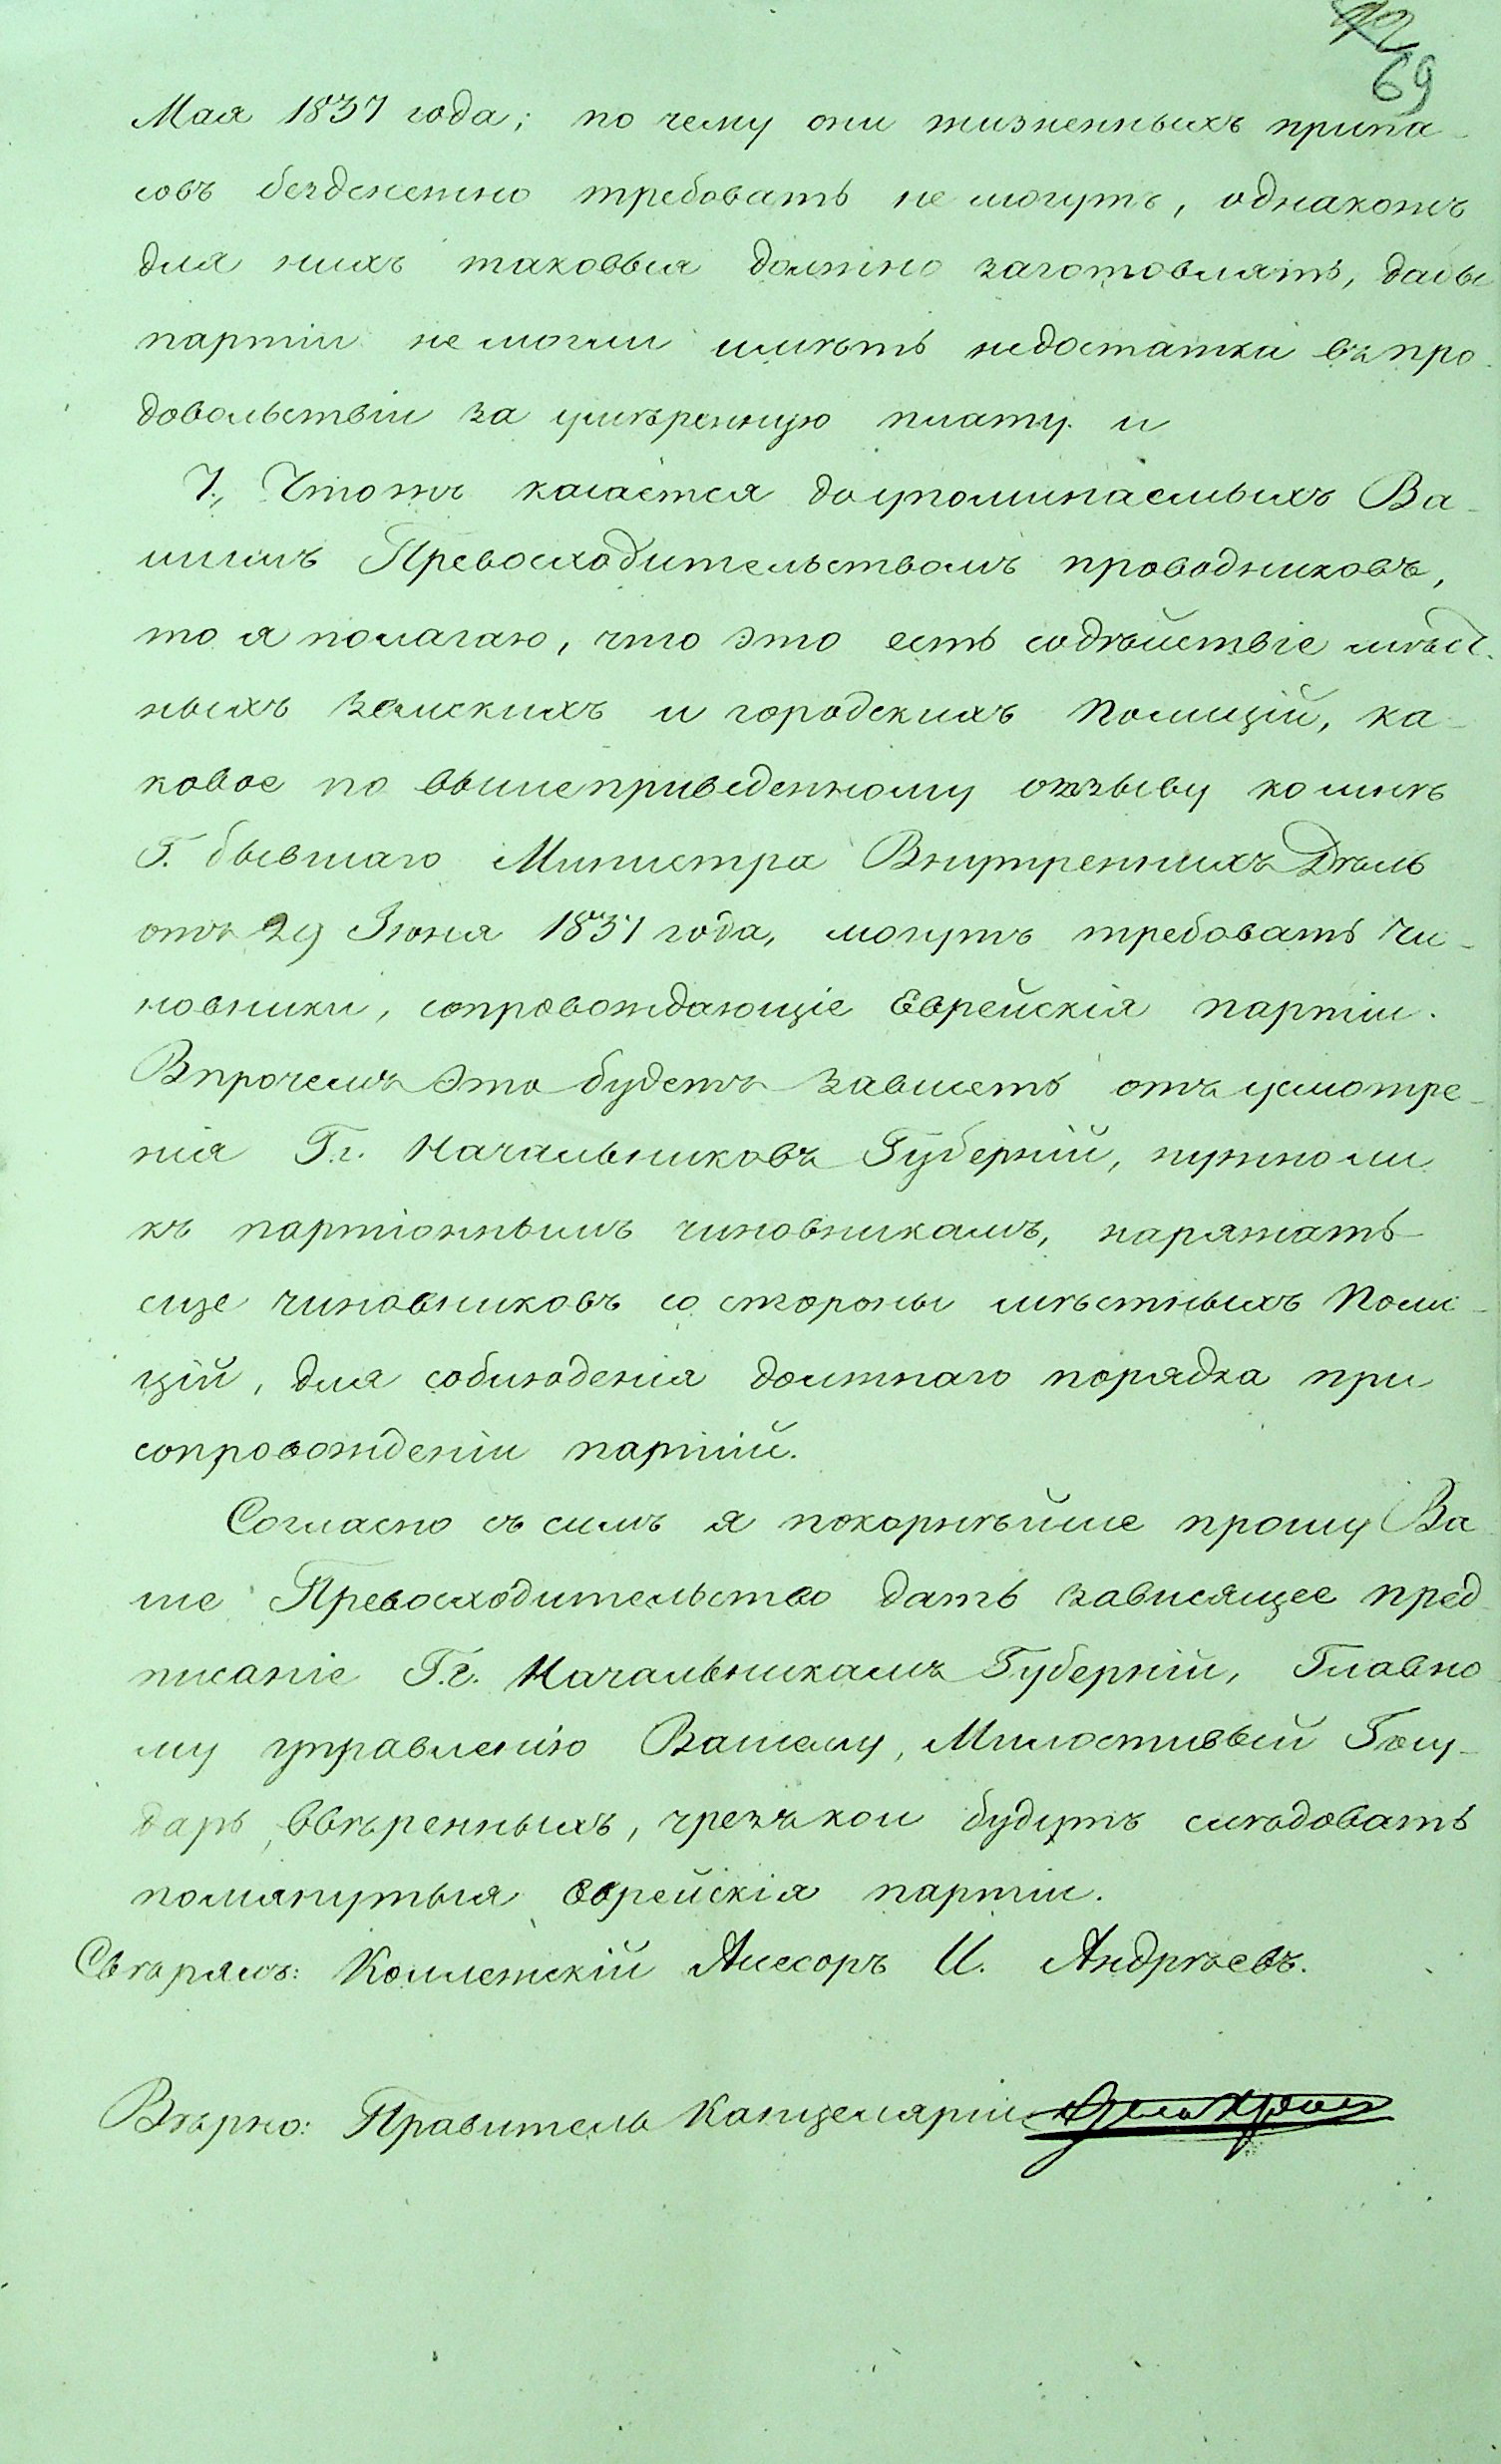 42
69
Мая 1837 года; по чему они жизненныхъ припа-
совъ безденежно требовать не могутъ, однакожъ
для нихъ таковыя должно заготовлять, дабы
партіи не могли имѣть недостатка въ про-
довольствіи за умѣренную плату. и
7., Чтожъ касается до упоминаемыхъ Ва-
шимъ Превосходительствомъ проводниковъ,
то я полагаю, что это есть содѣйствіе мѣст-
ныхъ земскихъ и городскихъ Полицій, ка-
ковое по вышеприведенному отзыву ко мнѣ
Г. бывшаго Министра Внутреннихъ Дѣлъ
отъ 29 Іюня 1837 года, могутъ требовать Чи-
новники, сопровождающіе Еврейскія партіи.
Впрочемъ это будетъ зависеть отъ усмотре-
нія Г.г. Начальниковъ Губерній, нужно ли
къ партіоннымъ чиновникамъ, наряжать
еще чиновниковъ со стороны мѣстныхъ Поли-
цій, для соблюденія должнаго порядка при
сопровожденіи партій.
Согласно съ симъ я покорнѣйше прошу Ва
ше Превосходительство дать зависящее пред-
писаніе Г.г. Начальникамъ Губерній, Главно
му управленію Вашему, Милостивый Госу-
дарь, ввѣренныхъ, чрезъ кои будутъ слѣдовать
помянутыя Еврейскія партіи.
Свѣрялъ: Коллежскій Ассесоръ И. Андрѣевъ.
Вѣрно: Правитель Канцеляріи